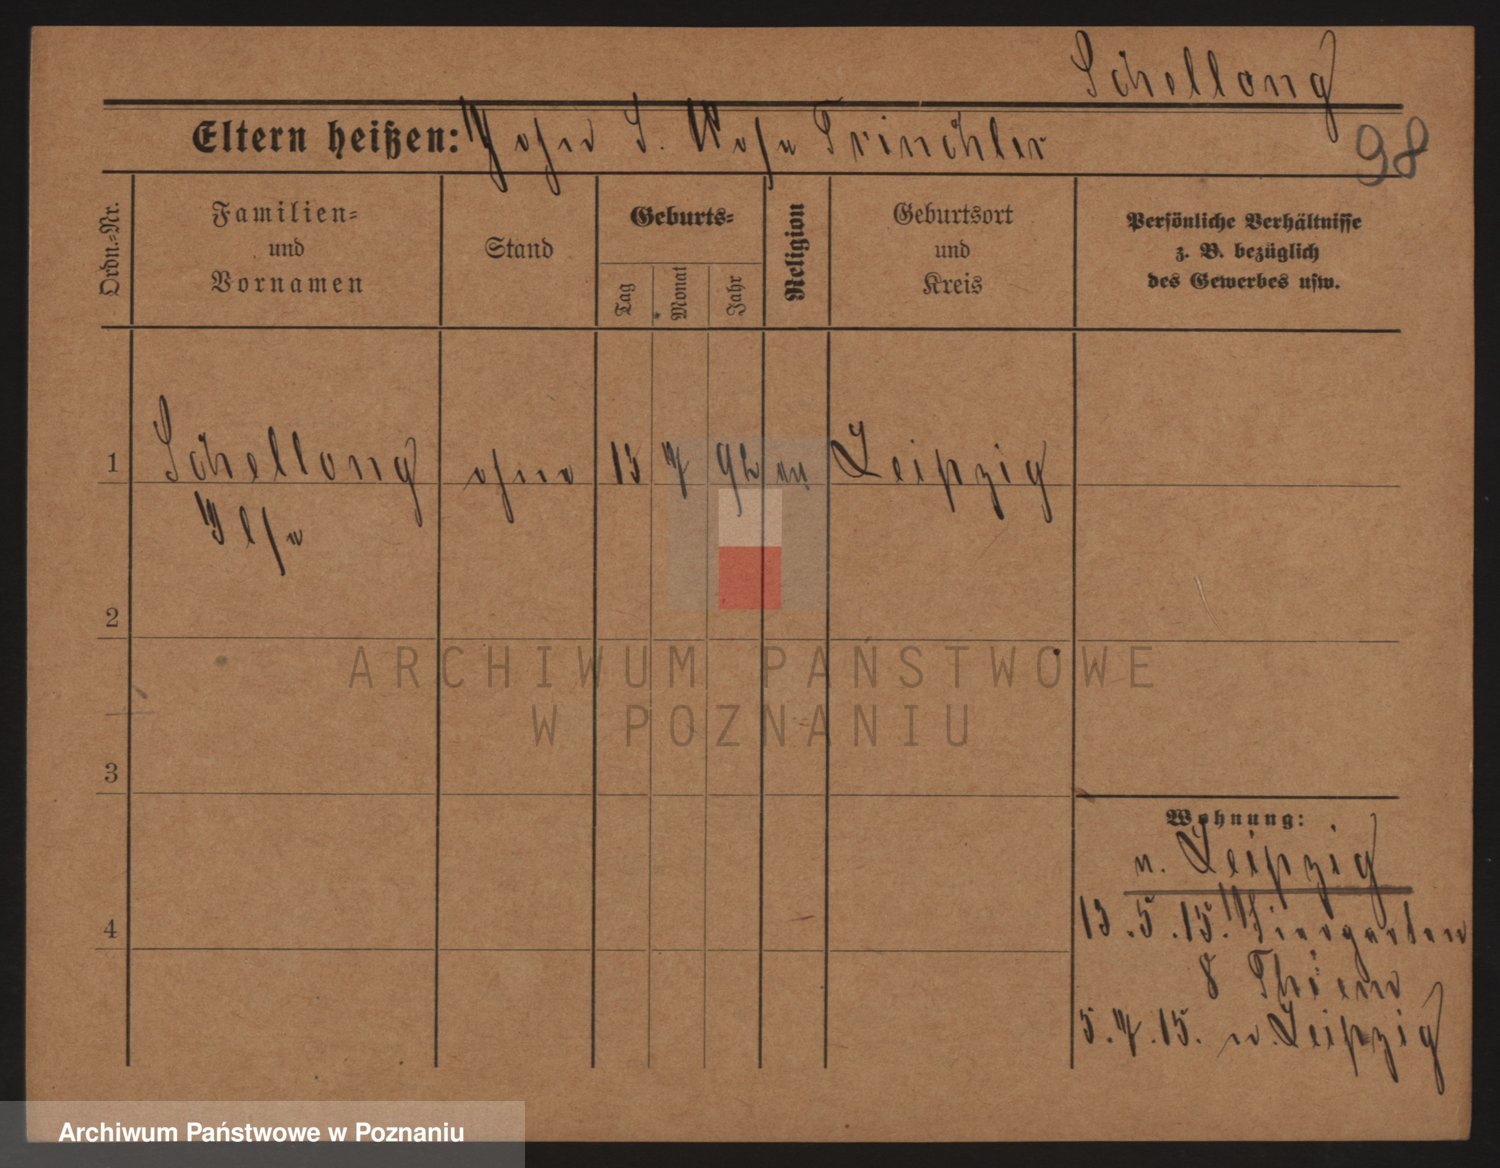 Schellong
98
Eltern heißen: S. Rosa
Ordn.=Nr.
Familien=
und
Vornamen
Stand
Geburts=
Tag
Monat
Jahr
Religion
Geburtsort
und
Kreis
Persönliche Verhältnisse
z. B. bezüglich
des Gewerbes usw.
1 Schellong ohne 13 7 92 ev Leipzig
Ilse
2
3
4
Wohnung:
n. Leipzig
13.5.15. Tiergarten
8
5.7.15. n. Leipzig
ARCHIWUM PAŃSTWOWE
W POZNANIU
Archiwum Państwowe w Poznaniu